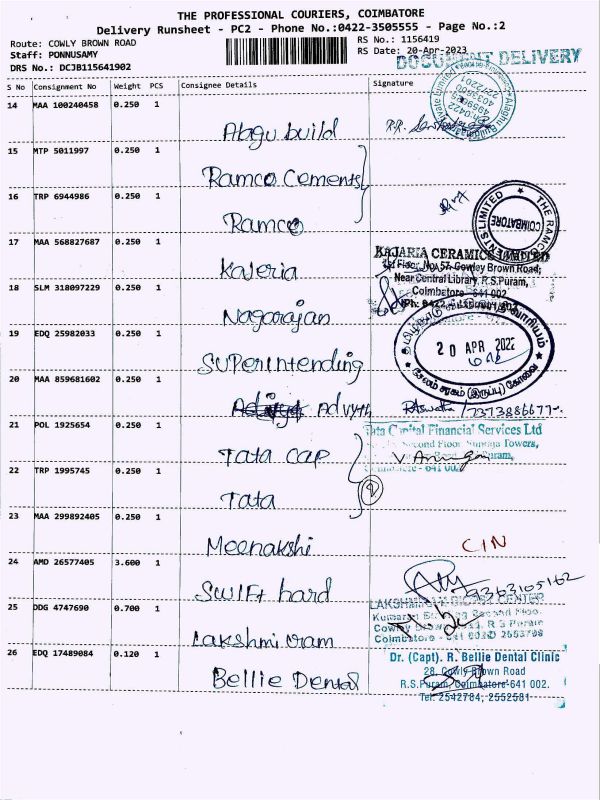 THE PROFESSIONAL COURIERS, COIMBATORE
Delivery Runsheet - PC2 - Phone No.:0422-3505555 - Page No.:2
Route: COWLY BROWN ROAD
Staff: PONNUSAMY
DRS No.: DCJB115641902
RS No.: 1156419
RS Date: 20-Apr-2023
DOCUMENT DELIVERY
S No Consignment No Weight PCS Consignee Details Signature
14 MAA 100240458 0.250 1 Alagu build
15 MTP 5011997 0.250 1 Ramco Cements
16 TRP 6944986 0.250 1 Ramco
THE RAMCO CEMENTS LIMITED
COIMBATORE
17 MAA 568827687 0.250 1 Kajeria
KAJARIA CERAMICS LIMITED
Ist Floor, No. 57, Cowley Brown Road,
Near Central Library, R.S.Puram,
Coimbatore - 641 002
18 SLM 318097229 0.250 1 Nagarajan
19 EDQ 25982033 0.250 1 Superintending
20 APR 2023
20 MAA 859681602 0.250 1 Advyth
7373886677
21 POL 1925654 0.250 1 Tata Cap
Tata Capital Financial Services Ltd
Second Floor Towers,
22 TRP 1995745 0.250 1 Tata
2
23 MAA 299892405 0.250 1 Meenakshi
CIN
24 AMD 26577405 3.600 1 Swift hard
9363105162
25 DDG 4747690 0.700 1 Lakshmi ram
Coimbatore
26 EDQ 17489084 0.120 1 Bellie Dental
Dr. (Capt). R. Bellie Dental Clinic
28, Cowly Brown Road
R.S.Puram, Coimbatore-641 002.
Tel: 2542784, 2552581